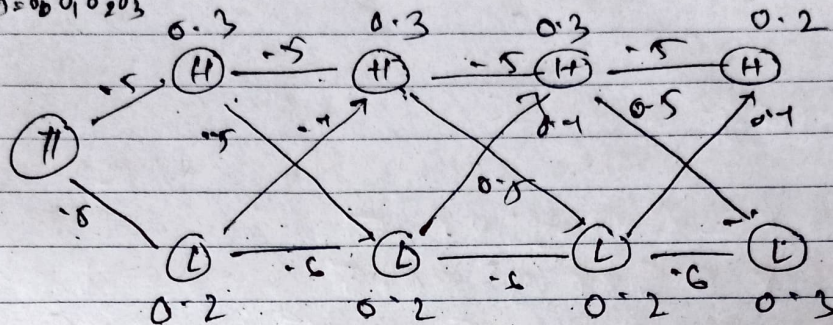 0.3 0.3 0.3 0.2
.5 H .5 H .5 H .5 H
π .5 .4 0.4 0.5 0.4
.5 0.5
L .6 L .6 L .6 L
0.2 0.2 0.2 0.3